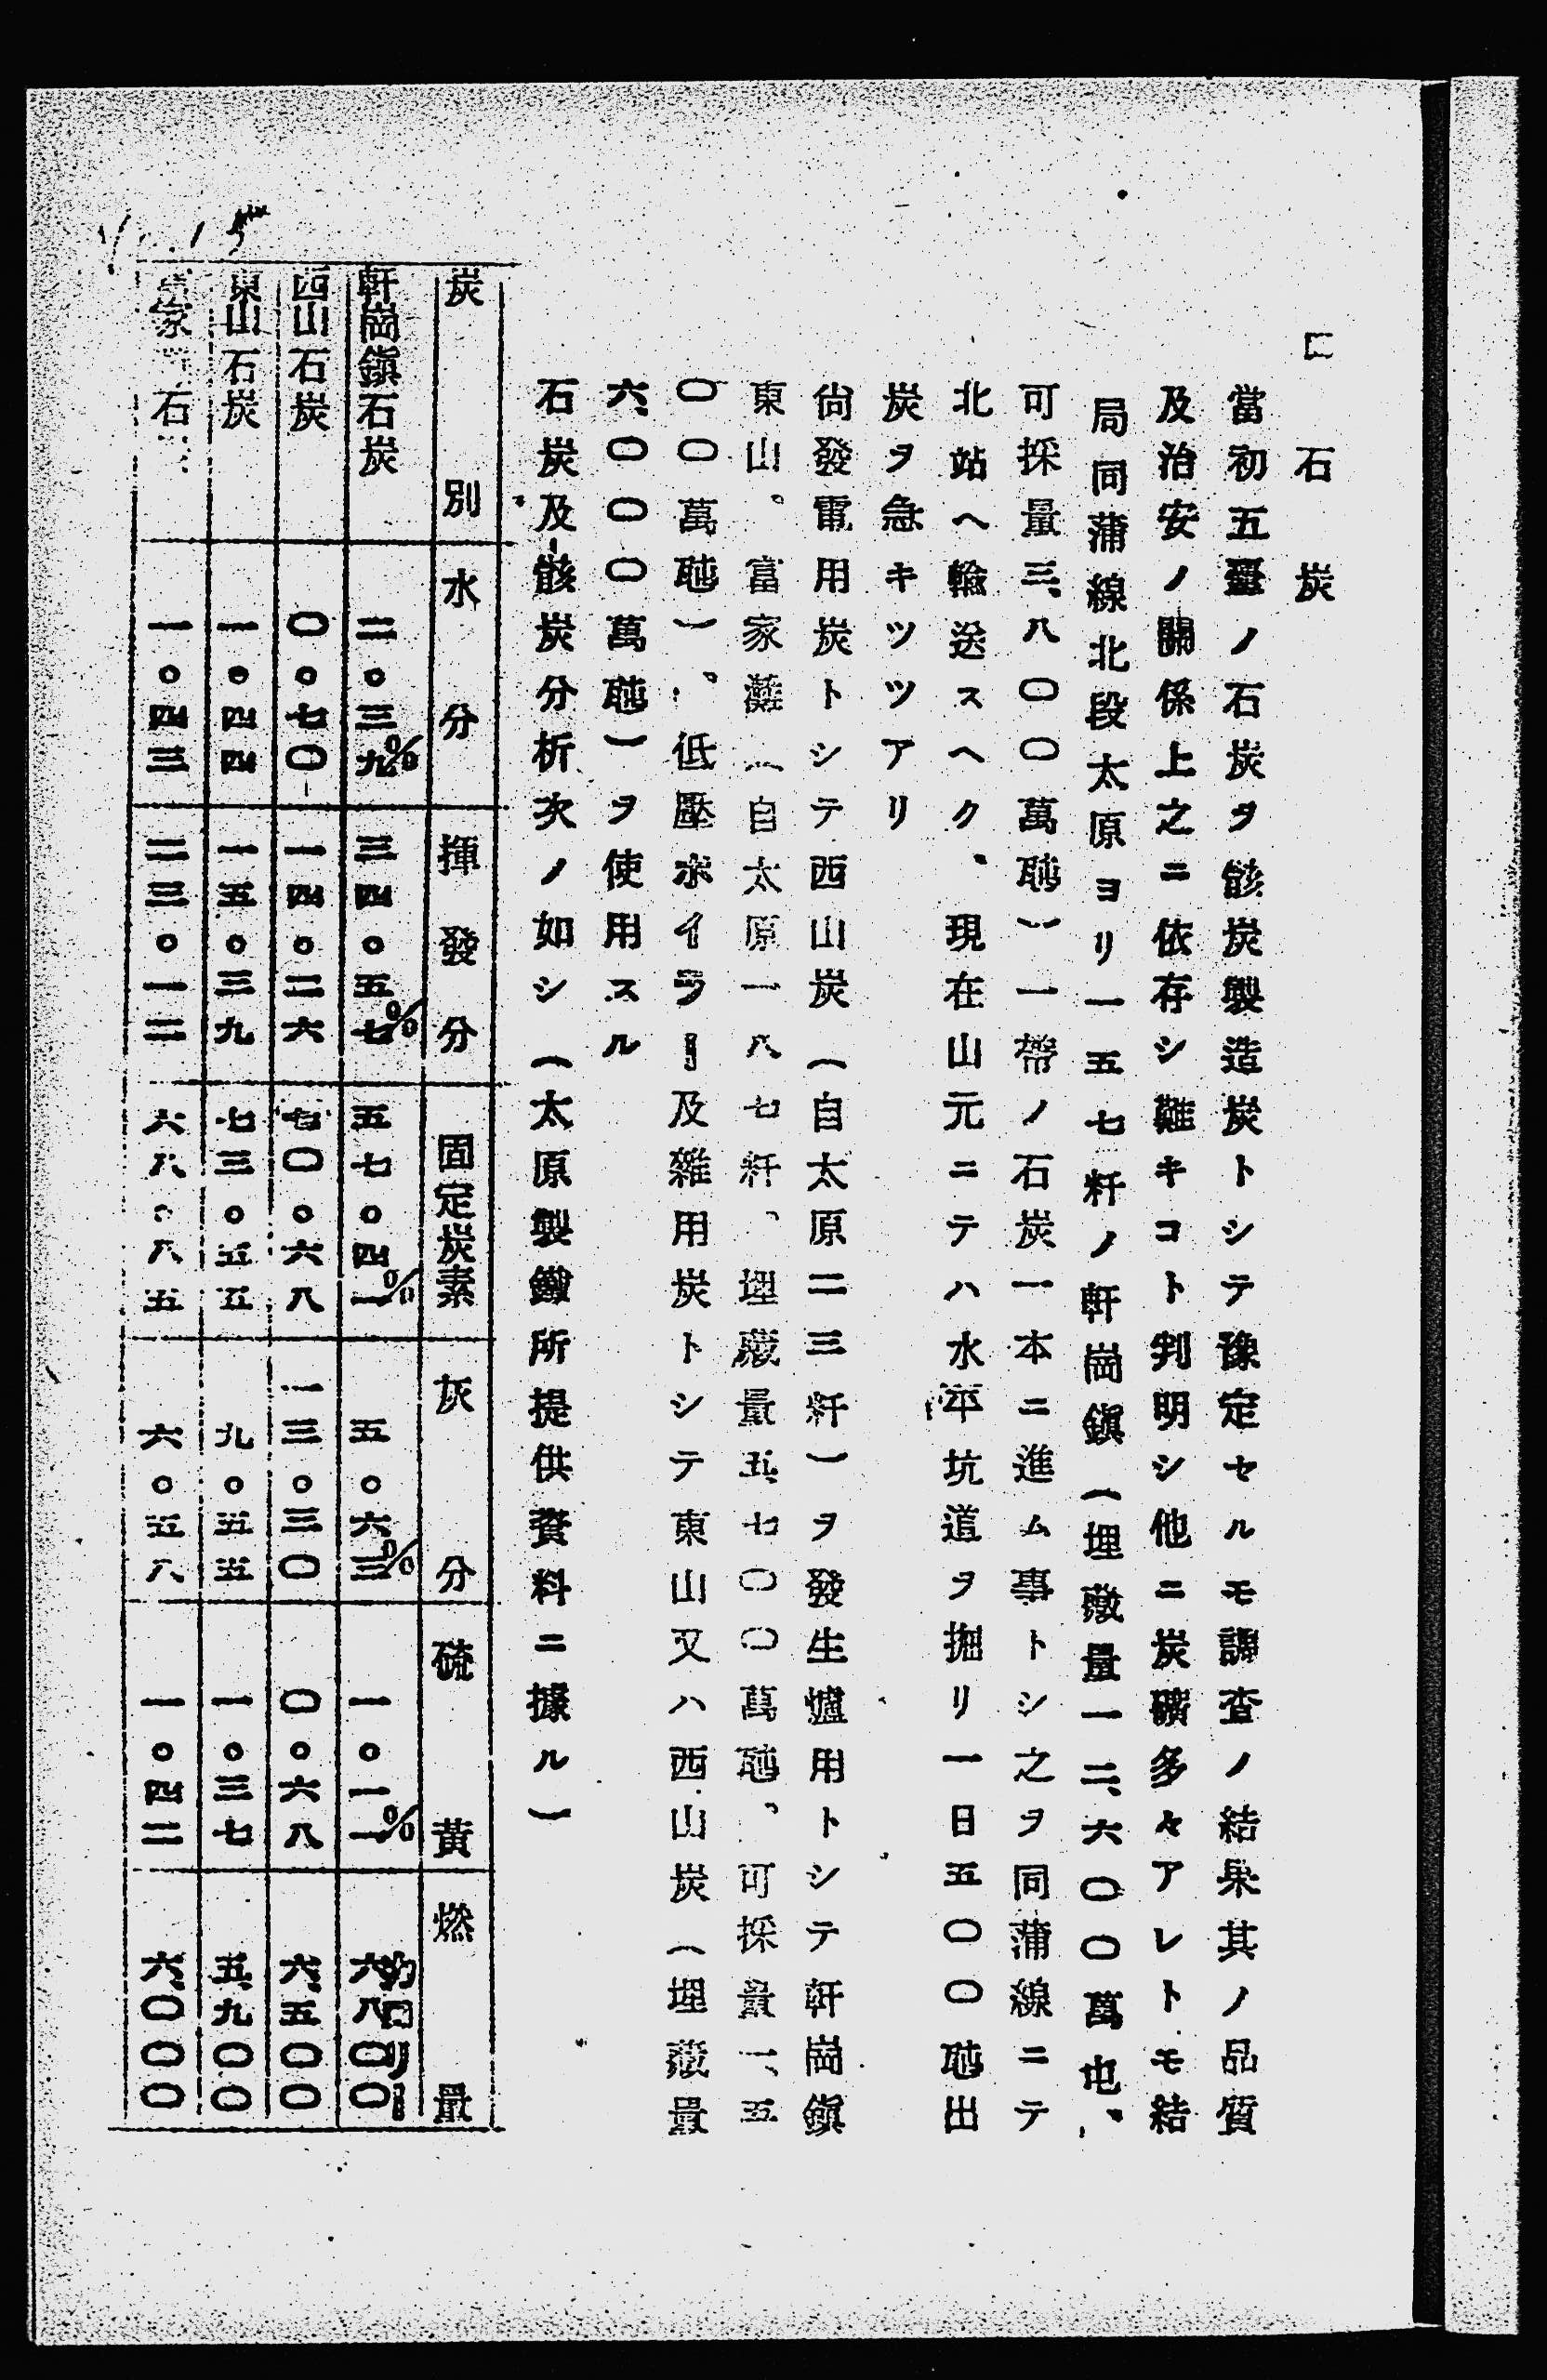 石炭
當初五臺ノ石炭ヲ骸炭製造炭トシテ豫定セルモ調査ノ結果其ノ品質
及治安ノ關係上之ニ依存シ難キコト判明シ他ニ炭礦多々アレトモ結
局同蒲線北段太原ヨリ一五七粁ノ軒崗鎭(埋藏量一二、六〇〇萬屯、
可採量三、八〇〇萬瓲)一帶ノ石炭一本ニ進ム事トシ之ヲ同蒲線ニテ
北站ヘ輸送スヘク、現在山元ニテハ水平坑道ヲ掘リ一日五〇〇瓲出
炭ヲ急キツツアリ
尙發電用炭トシテ西山炭(自太原二三粁)ヲ發生爐用トシテ軒崗鎭
東山、富家灘(自太原一八七粁、埋藏量五、七〇〇萬瓲、可採量一、五
〇〇萬瓲)、低壓ボイラー及雜用炭トシテ東山又ハ西山炭(埋藏量
六、〇〇〇萬瓲)ヲ使用スル
石炭及骸炭分析次ノ如シ(太原製鐵所提供資料ニ據ル)
炭別 水分 揮發分 固定炭素 灰分 硫黃 燃量
軒崗鎭石炭 二。三九% 三四。五七% 五七。四一% 五。六三% 一。一一% 約六、八〇〇カロリー
西山石炭 〇。七〇 一四。二六 七〇。六八 一三。三〇 〇。六八 六、五〇〇
東山石炭 一。四四 一五。三九 七三。五五 九。五五 一。三七 五、九〇〇
家 石 一。四三 二三。一二 六八。八五 六。五八 一。四二 六、〇〇〇